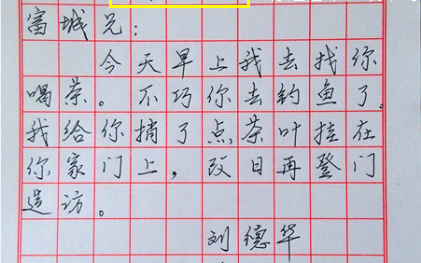 富城兄：
今天早上我去找你
喝茶。不巧你去钓鱼了。
我给你捎了点茶叶挂在
你家门上，改日再登门
造访。
刘德华